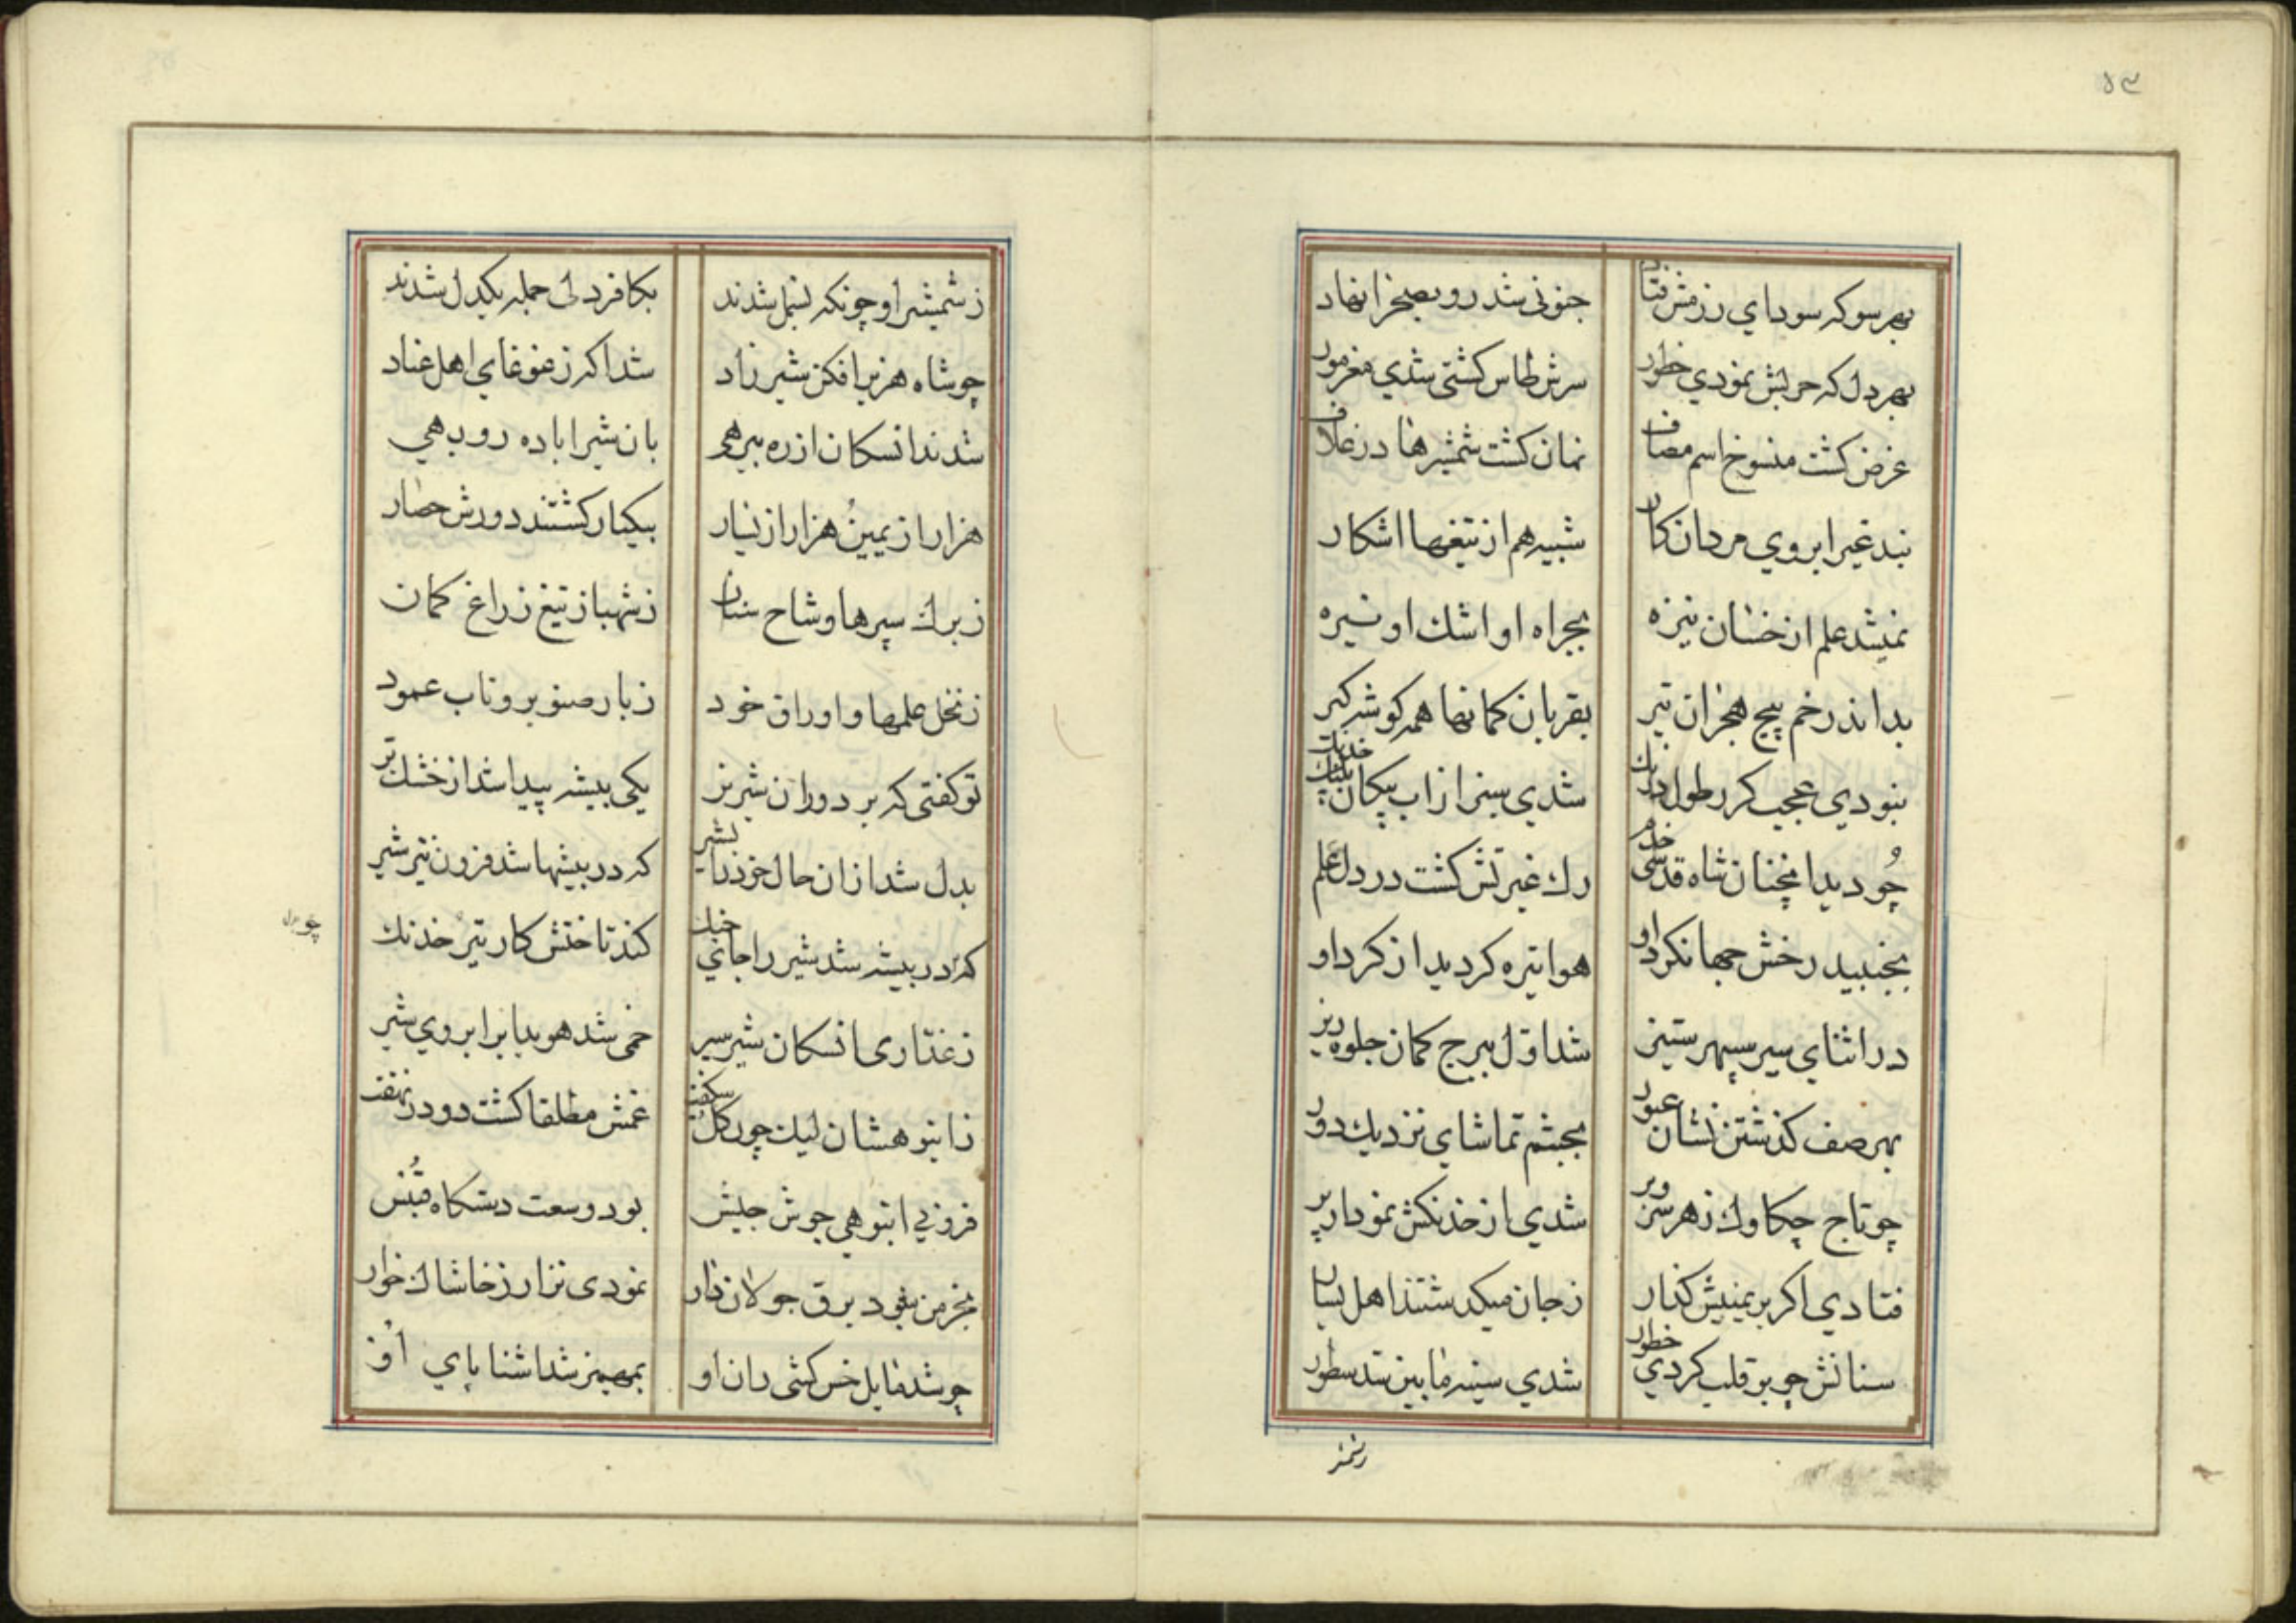 بهر سو که سودای رزمش فتاد جنونی شد رو بصحرا نهاد
بهر دل که حربش نمودی خطور سرش طاس کشتی شدی مغز مور
غرض کشت منسوخ اسم مصاف نمان کشت شمشیرها در غلاف
نبد غیر ابروی مردان کار شبیه هم از تیغها اشکار
نمیشد علم از خسان نیزه بجر اه او اشک او نیزه
بداندر خم پیچ هجران تیر بقربان کمانها همه کوشه کیر
نبودی عجب کر رطول درنك شدی سبز از اب پیکان خدنك
چو دید انچنان شاه قدسی خدم رك غیرتش کشت در دل علم
بجنبید رخش جهانکرد او هوا تیره کردید از کرد او
در اثنای سیر سپهر ستیز شد اول ببرج کمان جلوه ریز
بهر صف کذشتن نشان عبور بچشم تماشای نزدیك دور
چو تاج چکاوك زهر سر وبر شدی از خدنکش نمودار پر
فتادی اکر بر یمینش کذار زجان میکذشتند اهل یسار
سنانش چو بر قلب کردی خطور شدی سینه مابین ستد سطور
زشمشیر او چونکه بسمل شدند بکافر دلی جمله یکدل شدند
چو شاه هزبر افکن شیر زاد شد اکه زغوغای اهل عناد
شدند انسکان از ره بیرهی بان شیر اباده روبهی
هزار از یمین هزار از یسار بیکبار کشتند دورش حصار
زبرك سپرها و شاح سنان زشهباز تیغ زراغ کمان
زنخل علمها و اوراق خود زبار صنوبر وناب عمود
تو کفتی که بر دوران شیر نر یکی بیشه پیدا شد از خشك تر
بدل شد ازان حال خود را بشیر که در بیشها شد فزون تیر شیر
که در بیشه شد شیر را جای جنك کند تا ختش کار تیر خدنك
زغداری انسکان شیر سیر خمی شد هویدا بر ابروی شیر
زانبوهشان لیك چون کل شکفت غمش مطلقا کشت دود در نهفت
فزونی انبوهی جوش جیش بود وسعت دستکاه
بخرمن بود برق جولان نمودی نزار زخاشاك خوار
چو شد مایل خس کشی ران او بمهمیز شد اشنا پای او